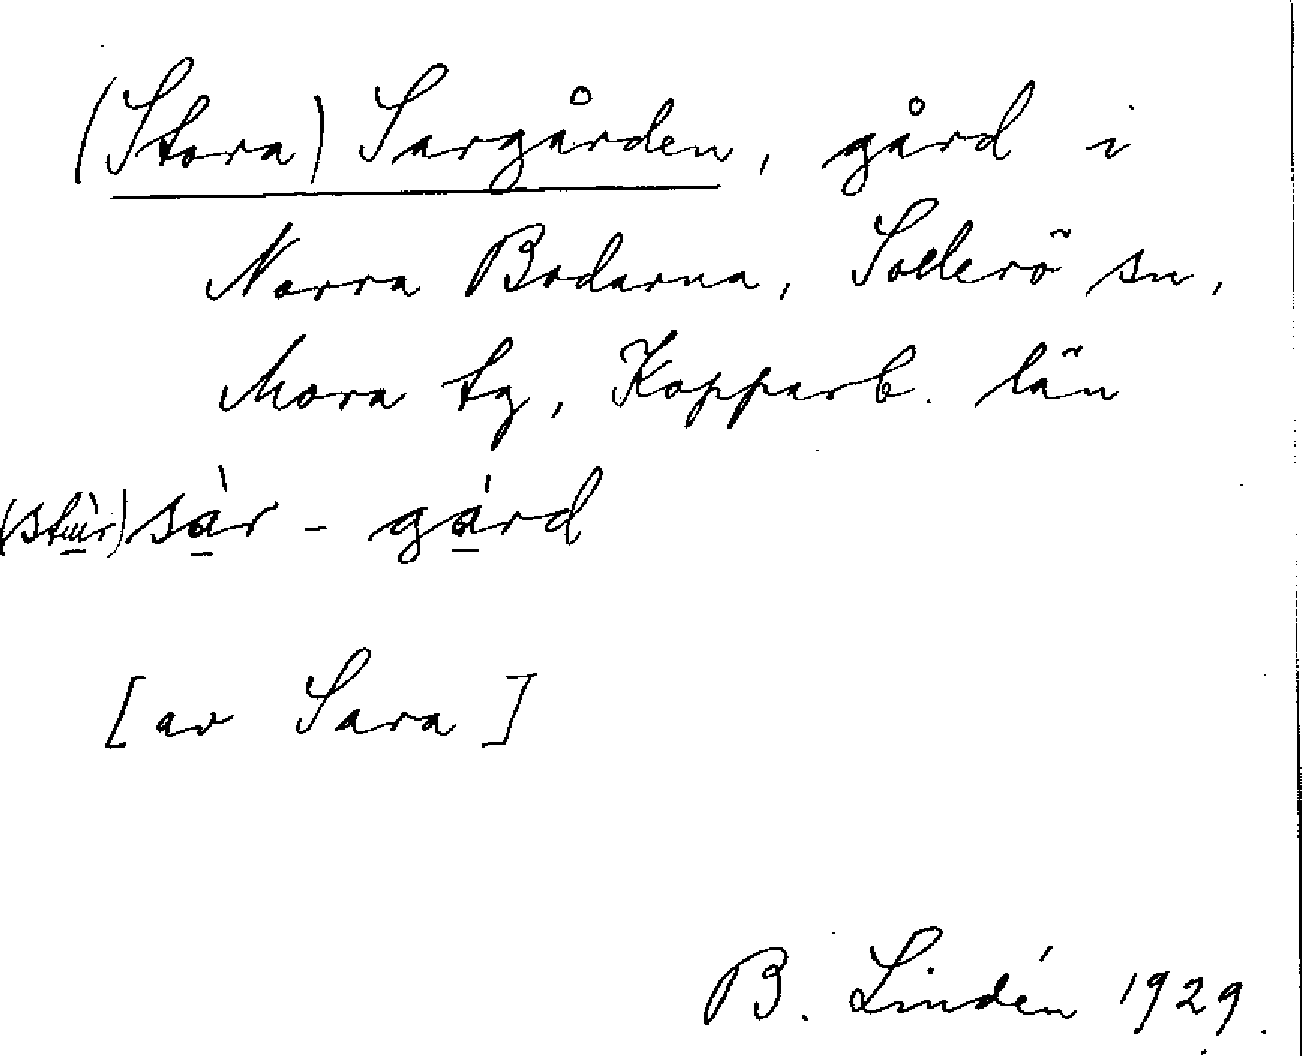 (Stora) Sargården, gård i
Norra Bodarna, Sollerö sn,
Mora tg, Kopparb. län
(stùr) sàr - gárd
[av Sara]
B. Lindén 1929.